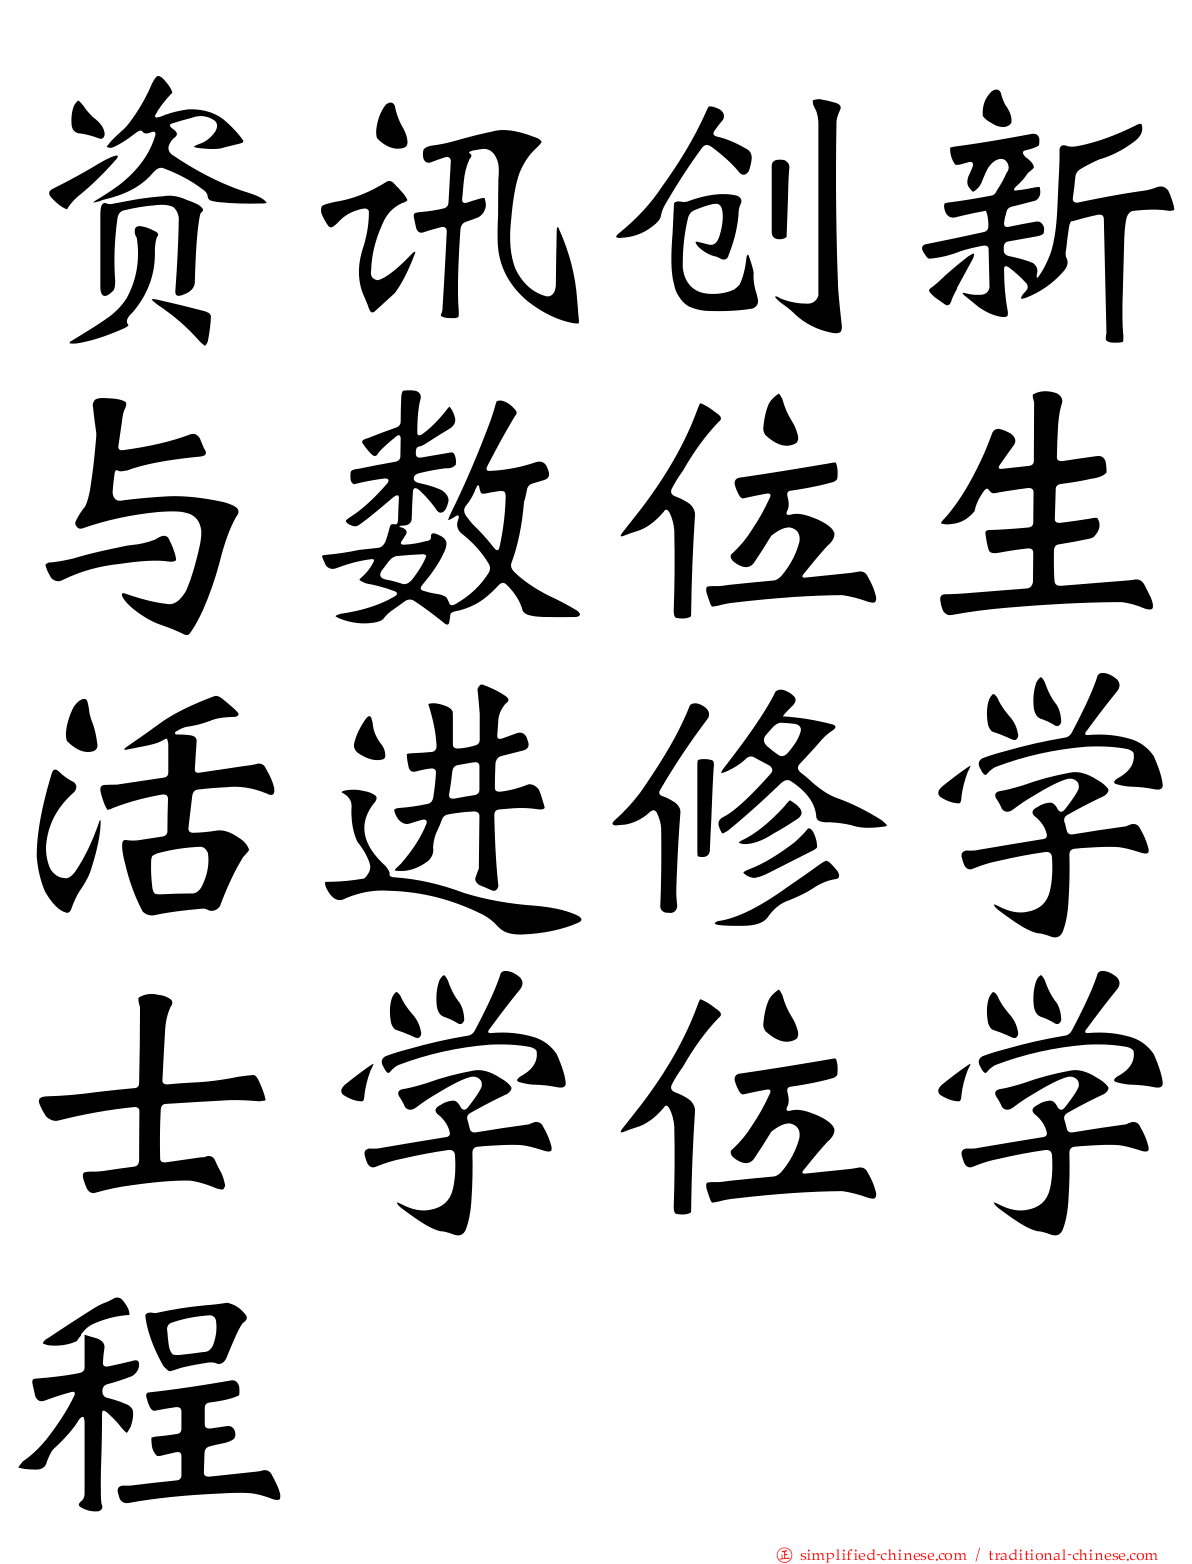 资讯创新
与数位生
活进修学
士学位学
程
正 simplified-chinese.com / traditional-chinese.com